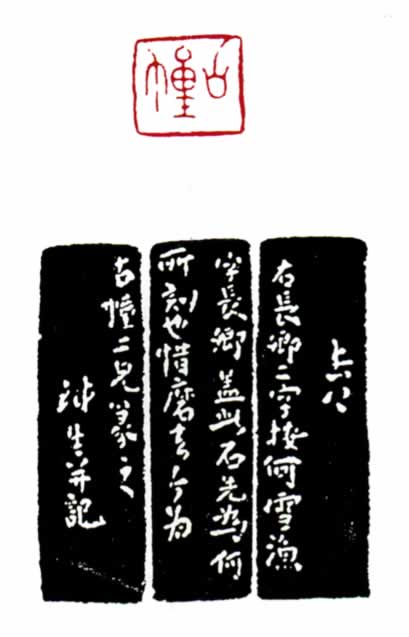 古幢
右長卿二字按何雪漁
字長卿蓋此石先為何
所刻也惜磨去今為
古幢二兄篆之
生并記